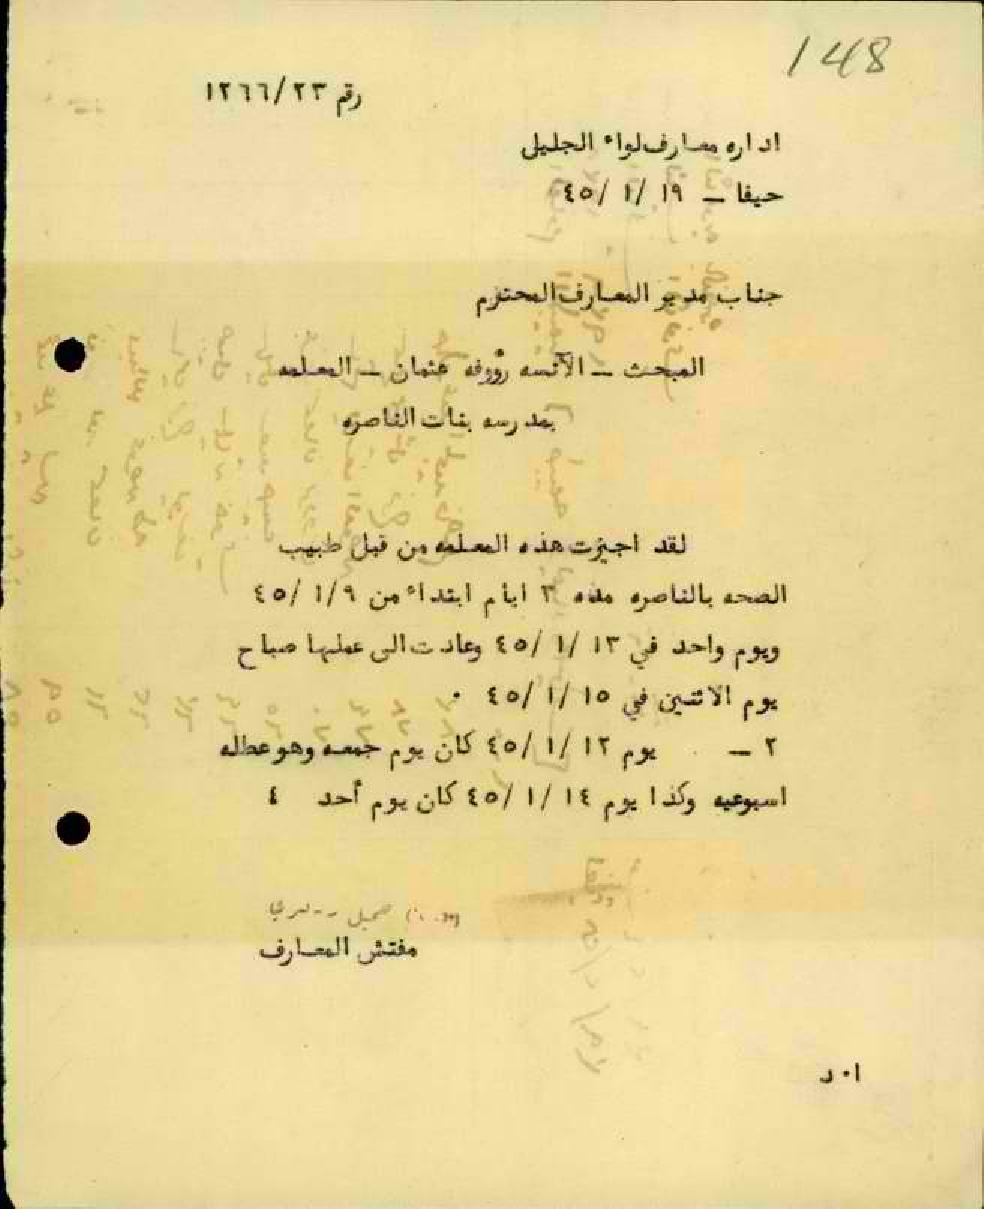 148
رقم ١٢٦٦/٢٣
اداره معارف لواء الجليلى
حيفا – ١٩ /١ /٤٥
جناب مدير المعارف المحترم
المبحث – الآنسه رؤوفه عثمان – المعلمه
بمدرسه بنات الناصره
لقد اجيزت هذه المعلمه من قبل طبيب
الصحه بالناصره مده ٣ ايام ابتداء من ٩ /١ /٤٥
ويوم واحد في ١٣ /١ /٤٥ وعادت الى عملها صباح
يوم الاثنين في ١٥ /١ /٤٥ ٠
٢ – يوم ١٢ /١ /٤٥ كان يوم جمعه وهو عطله
اسبوعيه وكذا يوم ١٤ /١ /٤٥ كان يوم أحد ٤
مفتش المعارف
ا ٠ د